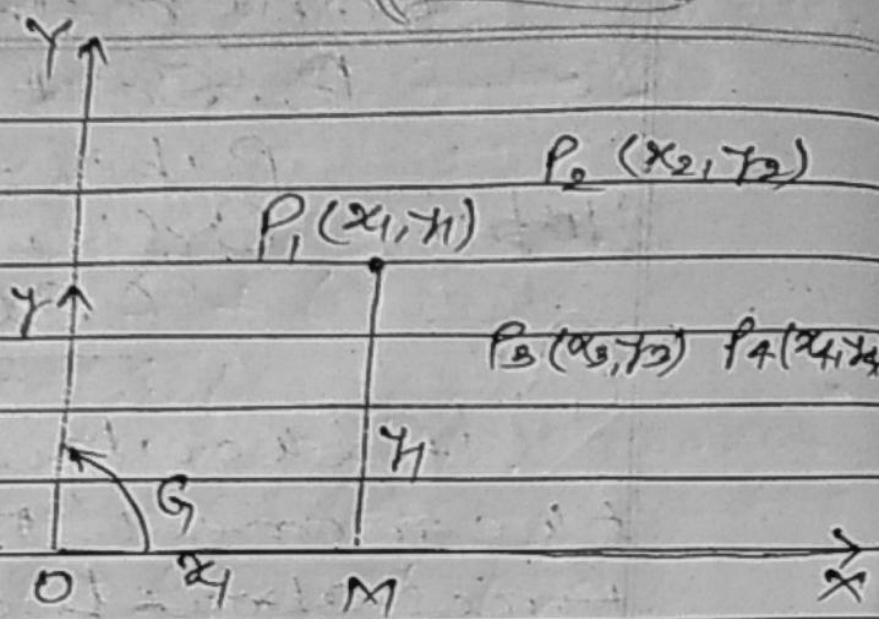 Y
P₂ (x₂, y₂)
P₁ (x₁, y₁)
y
P₃ (x₃, y₃) P₄ (x₄, y₄
y₁
G
O x₁ M X